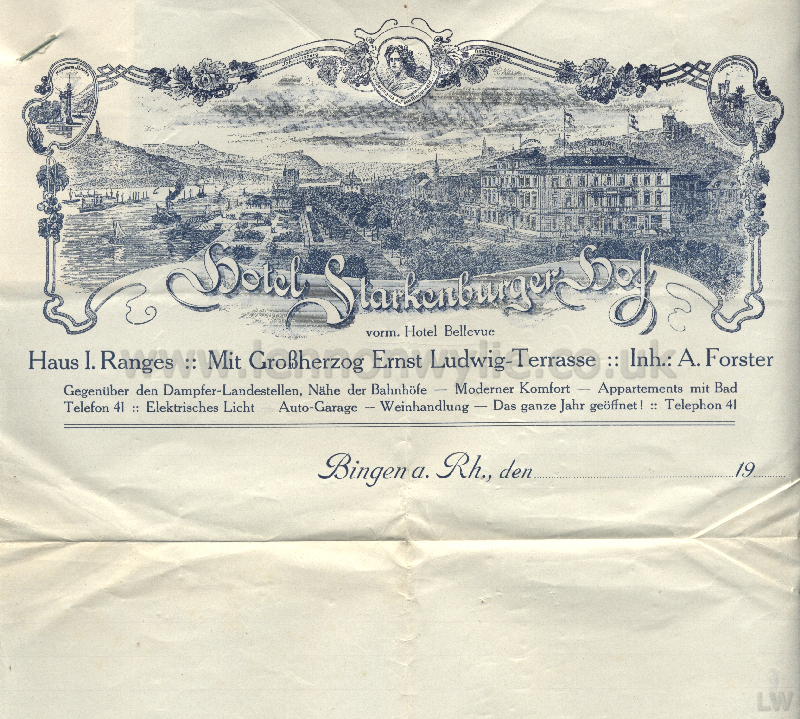 Hotel Starkenburger Hof
vorm. Hotel Bellevue
Haus I. Ranges :: Mit Großherzog Ernst Ludwig-Terrasse :: Inh.: A. Forster
Gegenüber den Dampfer-Landestellen, Nähe der Bahnhöfe — Moderner Komfort — Appartements mit Bad
Telefon 41 :: Elektrisches Licht Auto-Garage — Weinhandlung — Das ganze Jahr geöffnet! :: Telephon 41
Bingen a. Rh., den 19
www.lennonwylie.co.uk
LW